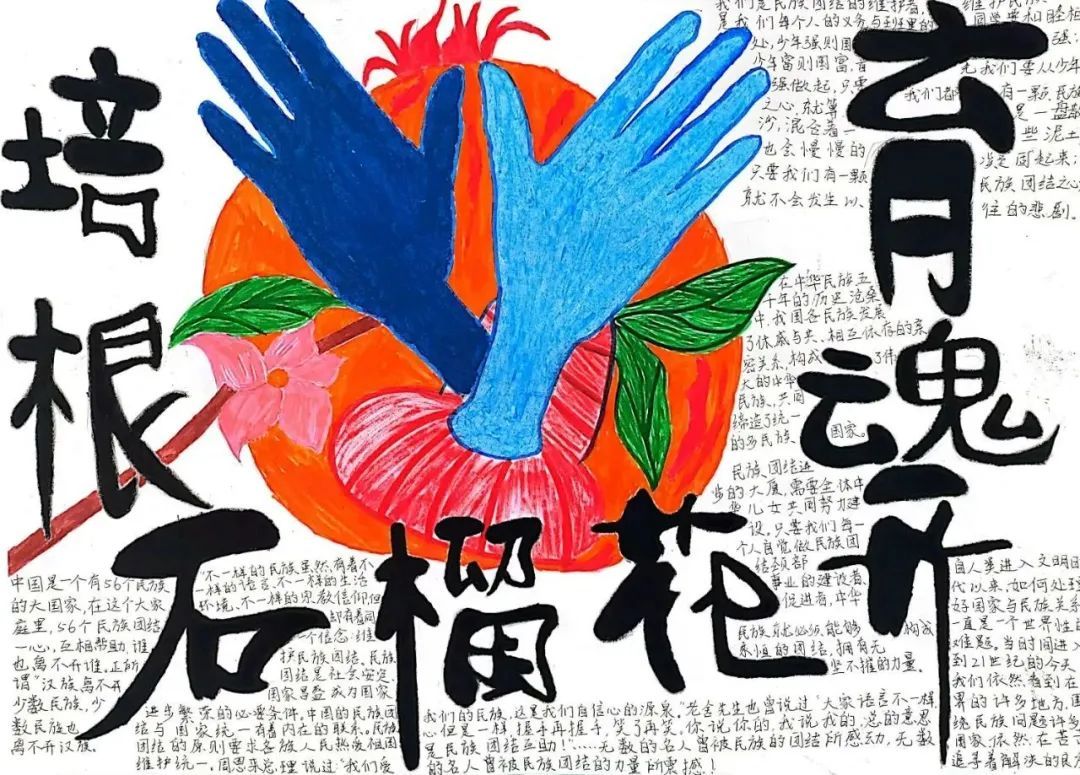 培根
育魂
石榴花开
我们是民族团结的维护者,
是我们每个人的义务与到班里的
处,少年强则国
少年富则国富,首
强做起,只要
之心就等
沙,混合着一
也会慢慢的
只要我们有一颗
就不会发生以
维护民族
同学要和睦相
强;
先我们要从少年
我们都有一颗民族
是一盘散
些泥土
凝固起来;
民族团结之心
往的悲剧。
在中华民族五
千年的历史沧桑
中,我国各民族发展
了休戚与共、相互依存的亲
密关系,构成了伟
大的中华
民族、共同
缔造了统一
的多民族国家。
民族团结进
步的大厦,需要全体中
华儿女共同努力建
设。只要我们每一
个人自觉做民族团
结颈部
事业的建设者,
促进者,中华
民族就必须能够构成
永恒的团结,拥有无
坚不摧的力量。
中国是一个有56个民族
的大国家,在这个大家
庭里,56个民族团结
一心,互相帮助,谁
也离不开谁。正所
谓“汉族离不开
少数民族,少
数民族也
离不开汉族。
不一样的民族虽然有着不
一样的语言、不一样的生活
环境、不一样的宗教信仰但
却有着同
一个信念:维
护民族团结。民族
团结是社会安定、
国家昌盛成为国家
进步繁荣的必要条件。中国的民族团
结与国家统一有着内在的联系。民族
团结的原则要求各族人民热爱祖国
维护统一。周恩来总理说过“我们爱
我们的民族,这是我们自信心的源泉。”老舍先生也曾说过“大家语言不一样,
心但是一样,握手再握手,笑了再笑。你说你的,我说我的,总的意思
是民族团结互助!”……无数的名人曾被民族的团结所感动,无数
的名人曾被民族团结的力量所震撼!
自人类进入文明时
代以来,如何处理
好国家与民族关系
一直是一个世界性的
难题。当时间进入
到21世纪的今天
我们依然看到在
界的许多地方,围
绕民族问题许多
国家依然在苦苦
追寻着解决的良方